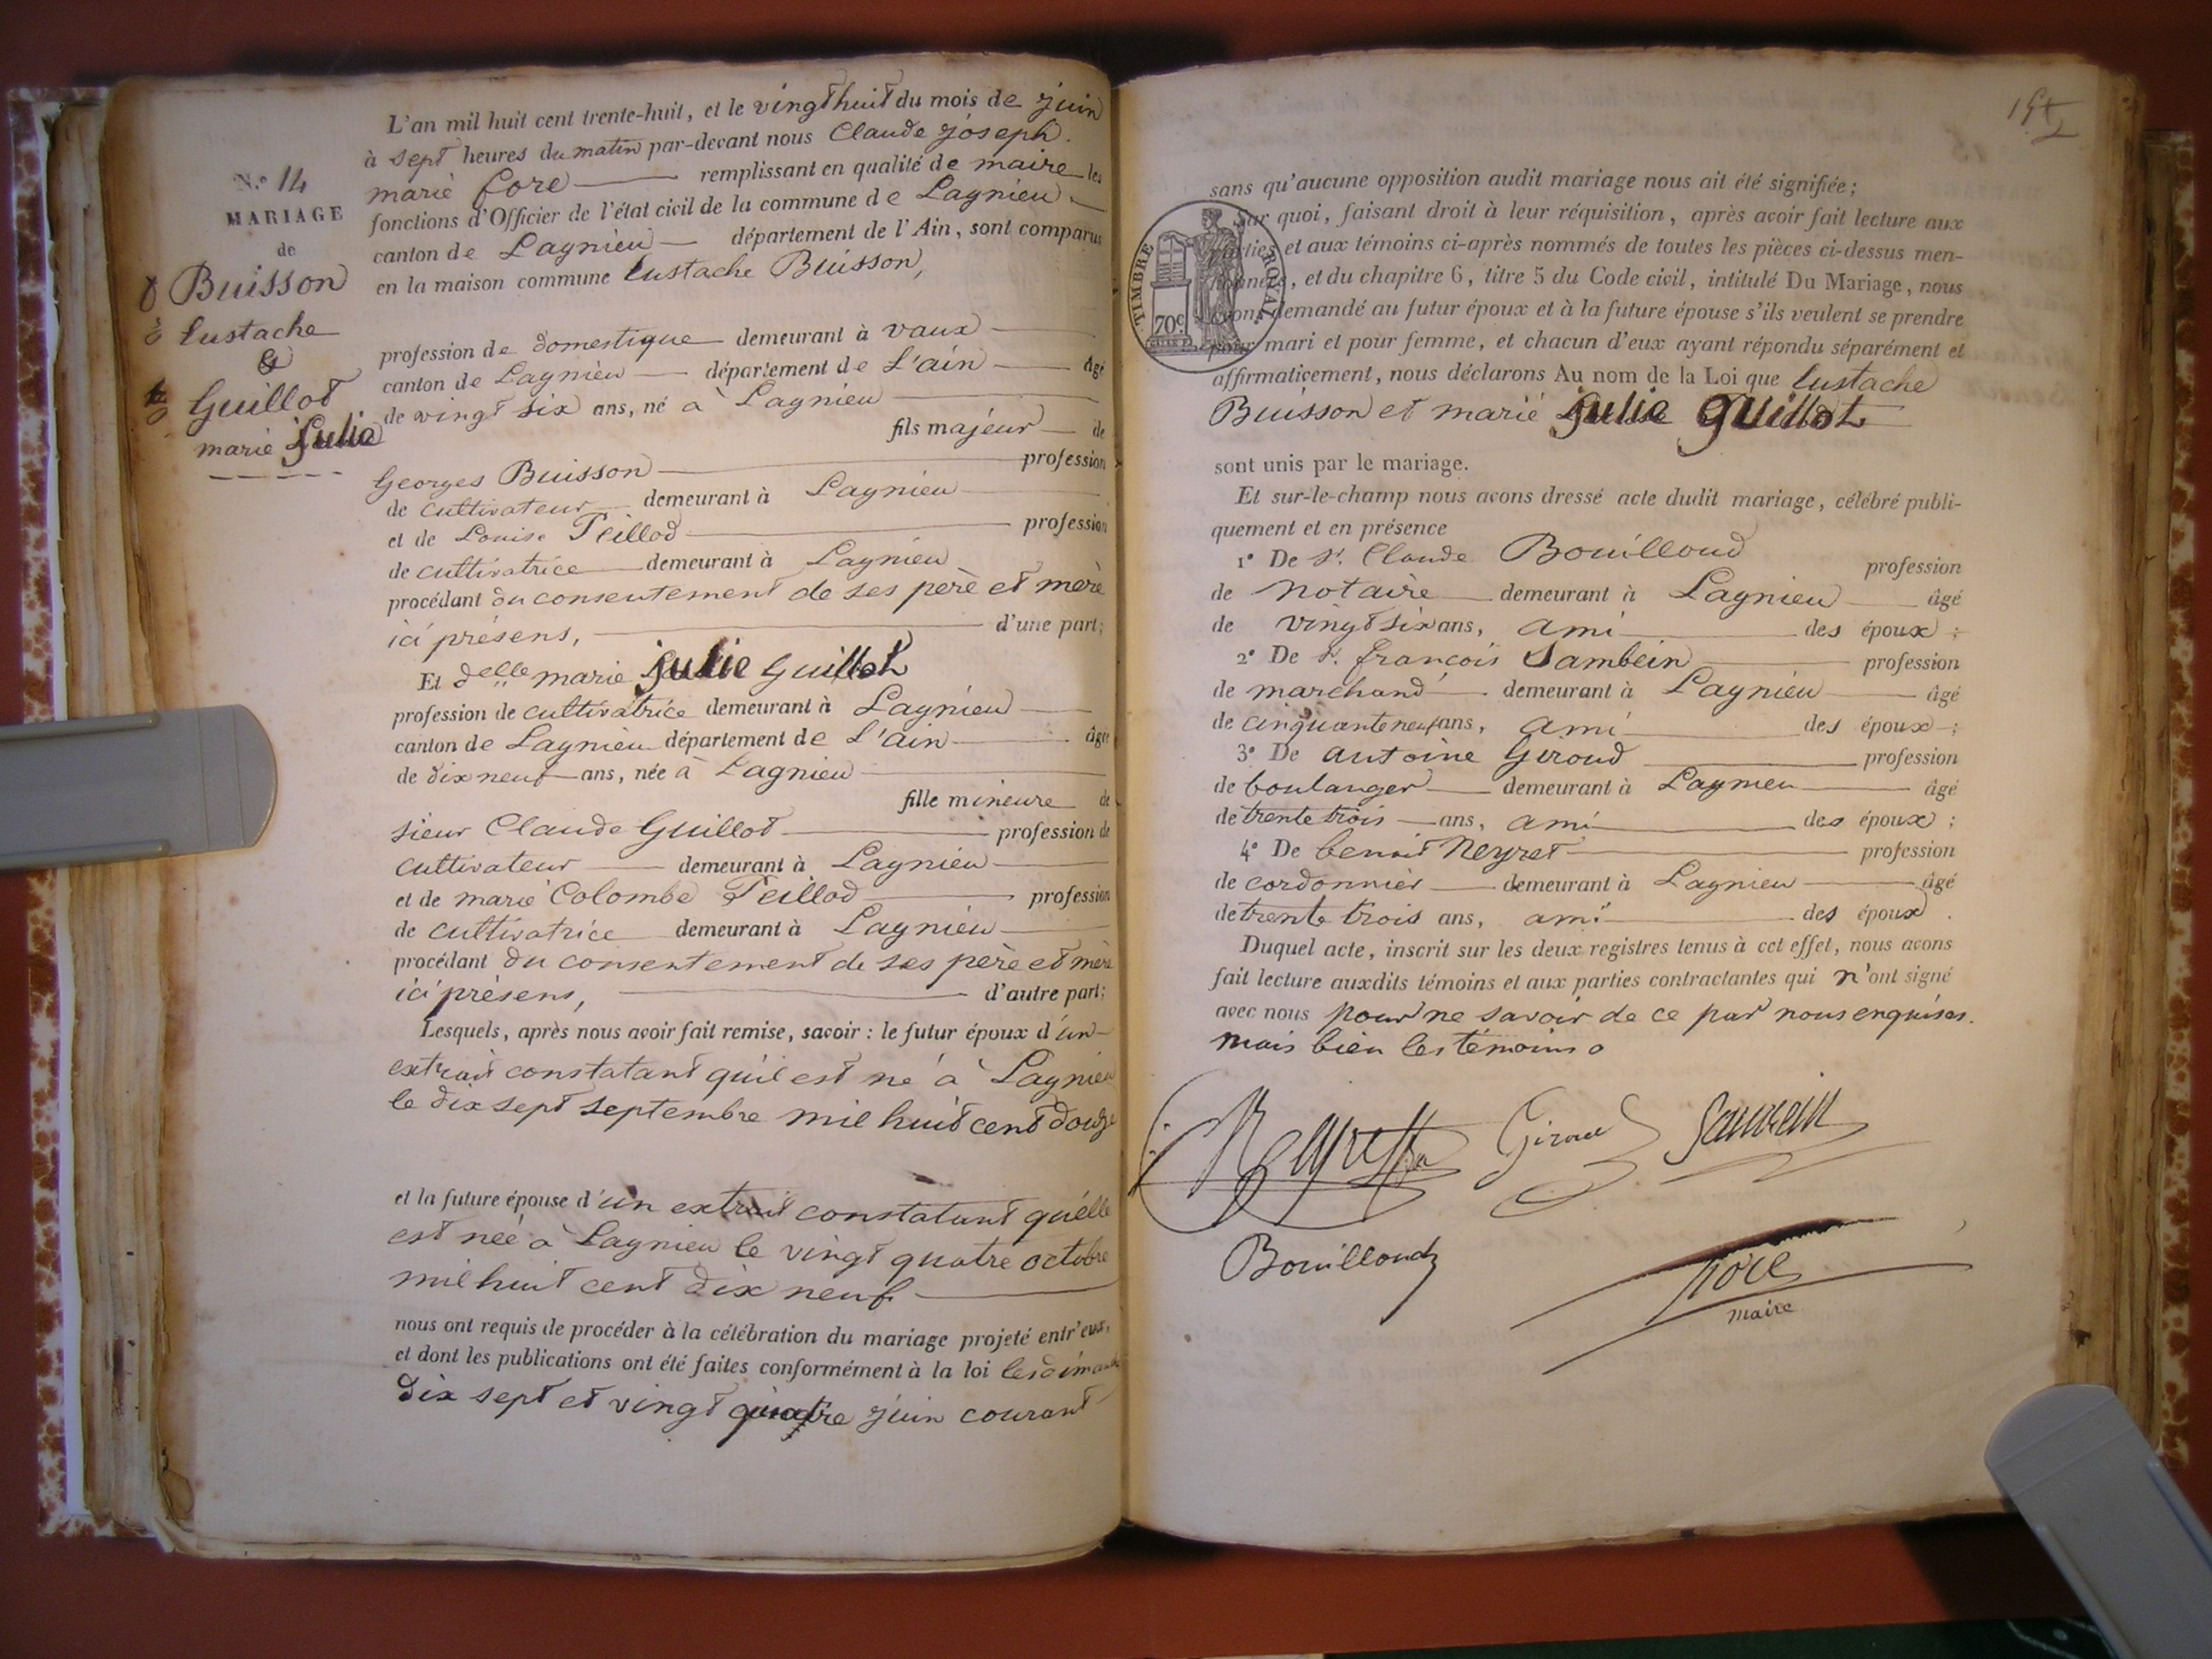 N.o 14
MARIAGE
de
Buisson
Eustache
&
Guillot
marie Julie
L'an mil huit cent trente-huit, et le vingt huit du mois de juin
à sept heures du matin par-devant nous Claude joseph
marie fore remplissant en qualité de maire les
fonctions d'Officier de l'état civil de la commune de Lagnieu
canton de Lagnieu département de l'Ain, sont comparus
en la maison commune Eustache Buisson,
profession de domestique demeurant à vaux
canton de Lagnieu département de L'ain âgé
de vingt six ans, né à Lagnieu
fils majeur de
Georges Buisson profession
de cultivateur demeurant à Lagnieu
et de Louise Peillod profession
de cultivatrice demeurant à Lagnieu
procédant du consentement de ses père et mère
ici présens, d'une part;
Et delle marie julie Guillot
profession de cultivatrice demeurant à Lagnieu
canton de Lagnieu département de L'ain âgée
de dix neuf ans, née à Lagnieu
fille mineure de
sieur Claude Guillot profession de
cultivateur demeurant à Lagnieu
et de marie Colombe Peillod profession
de cultivatrice demeurant à Lagnieu
procédant du consentement de ses père et mère
ici présens, d'autre part;
Lesquels, après nous avoir fait remise, savoir : le futur époux d'un
extrait constatant qu'il est né à Lagnieu
le dix sept septembre mil huit cent douze
et la future épouse d'un extrait constatant qu'elle
est née à Lagnieu le vingt quatre octobre
mil huit cent dix neuf
nous ont requis de procéder à la célébration du mariage projeté entr'eux,
et dont les publications ont été faites conformément à la loi les dimanches
dix sept et vingt quatre juin courant
sans qu'aucune opposition audit mariage nous ait été signifiée;
Sur quoi, faisant droit à leur réquisition, après avoir fait lecture aux
parties et aux témoins ci-après nommés de toutes les pièces ci-dessus men-
tionnées, et du chapitre 6, titre 5 du Code civil, intitulé Du Mariage, nous
avons demandé au futur époux et à la future épouse s'ils veulent se prendre
pour mari et pour femme, et chacun d'eux ayant répondu séparément et
affirmativement, nous déclarons Au nom de la Loi que Eustache
Buisson et marie julie Guillot
TIMBRE ROYAL
70c
sont unis par le mariage.
Et sur-le-champ nous avons dressé acte dudit mariage, célébré publi-
quement et en présence
1° De sr. Claude Bouilloud profession
de notaire demeurant à Lagnieu âgé
de vingt six ans, ami des époux;
2° De sr. françois Sambein profession
de marchand demeurant à Lagnieu âgé
de cinquante neuf ans, ami des époux;
3° De antoine Giroud profession
de boulanger demeurant à Lagnieu âgé
de trente trois ans, ami des époux;
4° De benoit Neyret profession
de cordonnier demeurant à Lagnieu âgé
de trente trois ans, ami des époux.
Duquel acte, inscrit sur les deux registres tenus à cet effet, nous avons
fait lecture auxdits témoins et aux parties contractantes qui n'ont signé
avec nous pour ne savoir de ce par nous enquises.
mais bien les témoins
Neyret Giroud
Bouilloud fore
maire